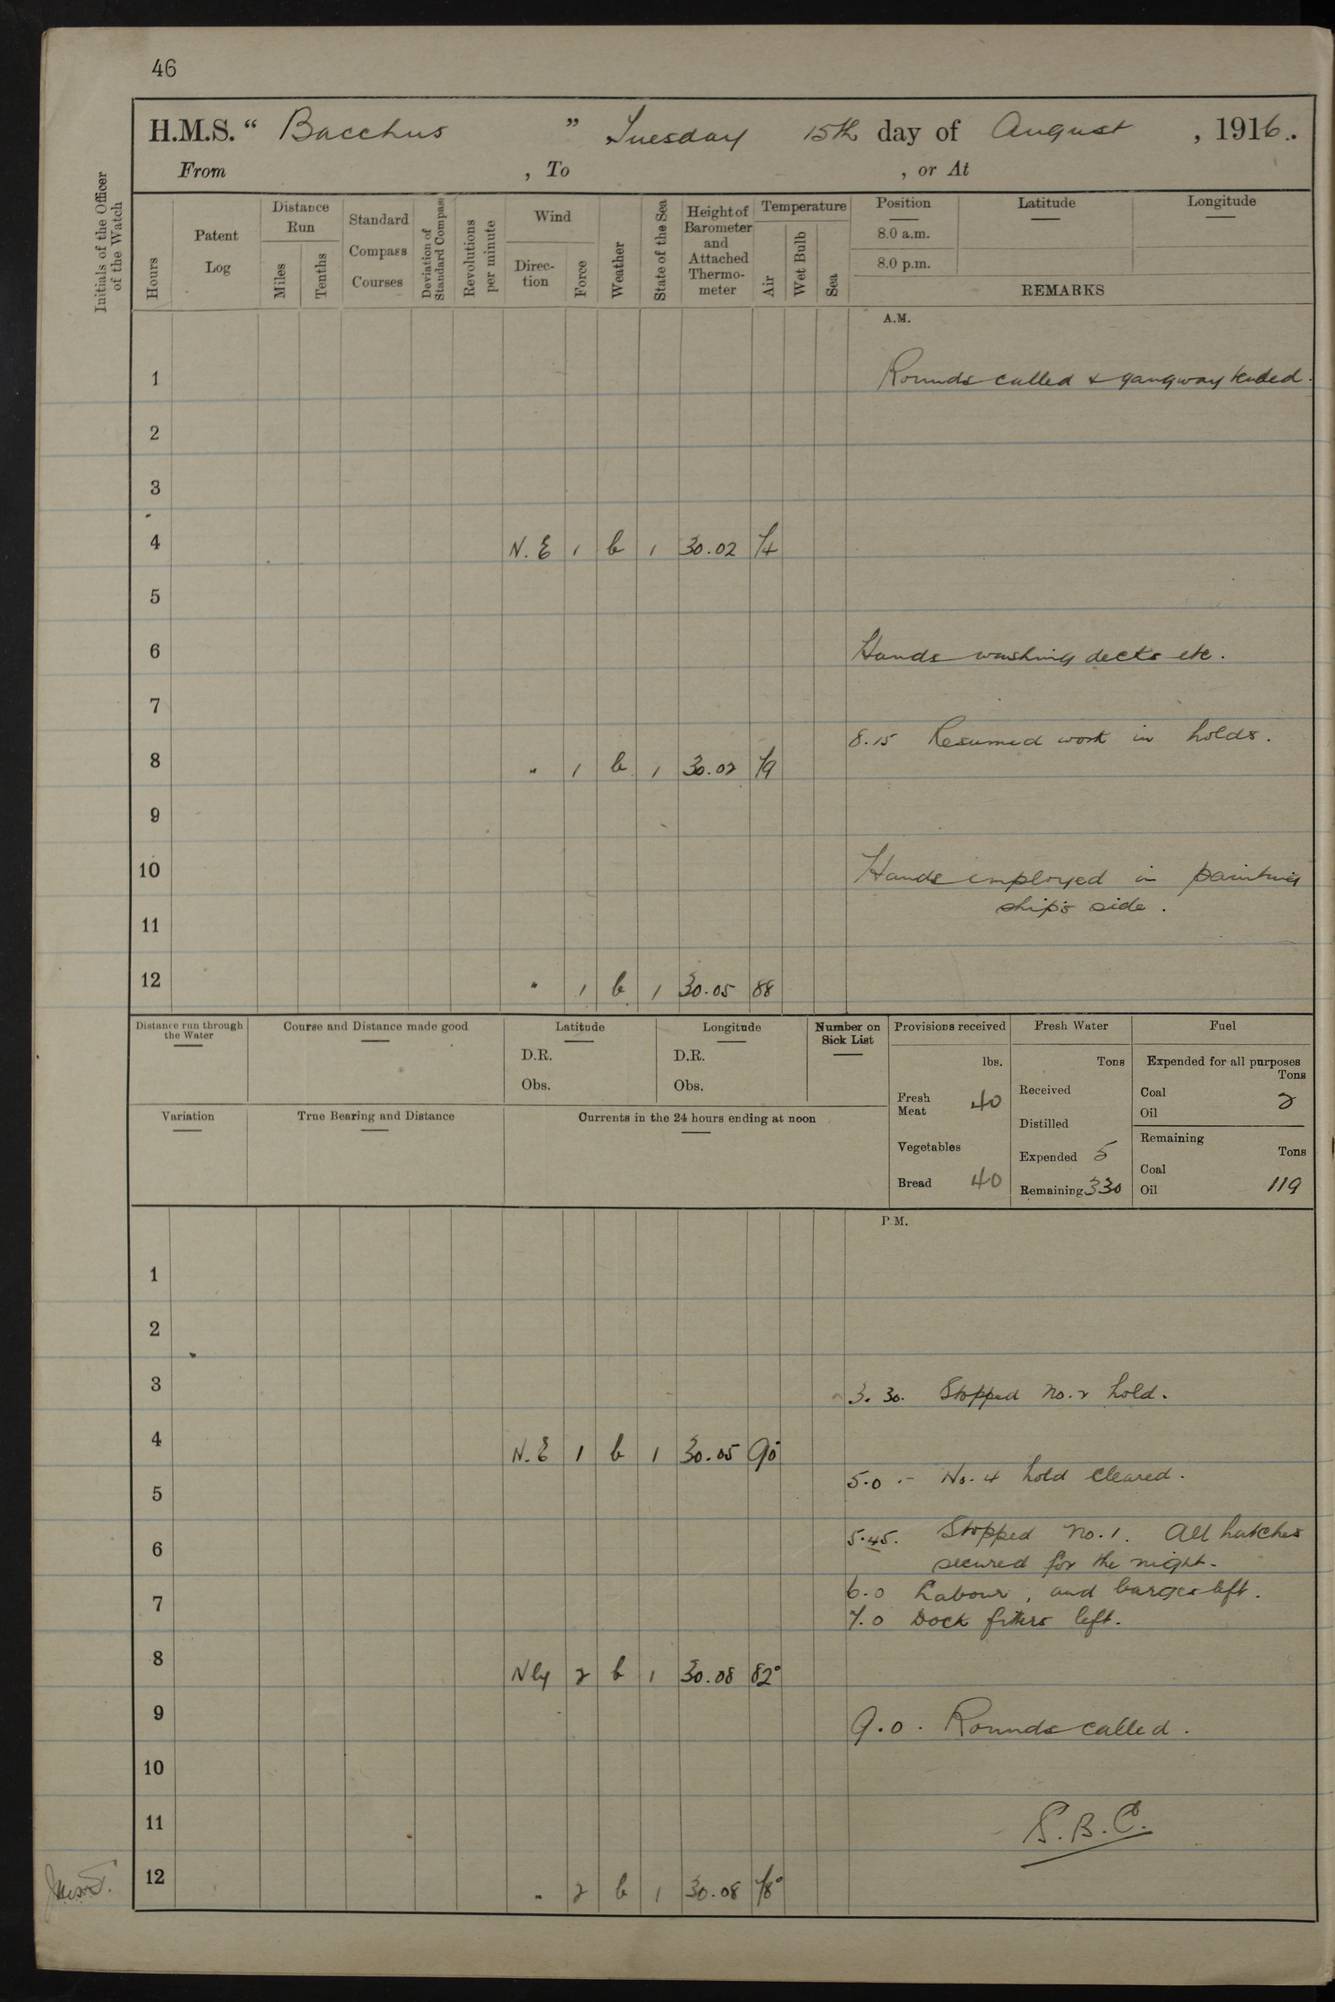 46
H.M.S. “ Bacchus ” Tuesday 15th day of August , 1916.
From , To , or At
Initials of the Officer of the Watch
Hours
Patent Log
Distance Run
Miles
Tenths
Standard Compass Courses
Deviation of Standard Compass
Revolutions per minute
Wind
Direction
Force
Weather
State of the Sea
Height of Barometer and Attached Thermometer
Temperature
Air
Wet Bulb
Sea
Position Latitude Longitude
8.0 a.m.
8.0 p.m.
REMARKS
A.M.
1 Rounds called & gangway tended.
2
3
4 N.E 1 b 1 30.02 74
5
6 Hands washing decks etc.
7
8.15 Resumed work in holds.
8 " 1 b 1 30.02 79
9
10 Hands employed in painting
ship's side.
11
12 " 1 b 1 30.05 88
Distance run through the Water
Course and Distance made good
Latitude
D.R.
Obs.
Longitude
D.R.
Obs.
Number on Sick List
Provisions received
lbs.
Fresh Meat 40
Vegetables
Bread 40
Fresh Water
Tons
Received
Distilled
Expended 5
Remaining 330
Fuel
Expended for all purposes
Tons
Coal 2
Oil
Remaining
Tons
Coal
Oil 119
Variation
True Bearing and Distance
Currents in the 24 hours ending at noon
P.M.
1
2
3 3.30. Stopped No. 2 hold.
4 N.E 1 b 1 30.05 90°
5.0 - No. 4 hold cleared.
5
5.45. Stopped No. 1. All hatches
6 secured for the night.
6.0 Labour, and barges left.
7 7.0 Dock fitters left.
8 Nly 2 b 1 30.08 82°
9 9.0. Rounds called.
10
11 S.B.C.
12 " 2 b 1 30.08 78°